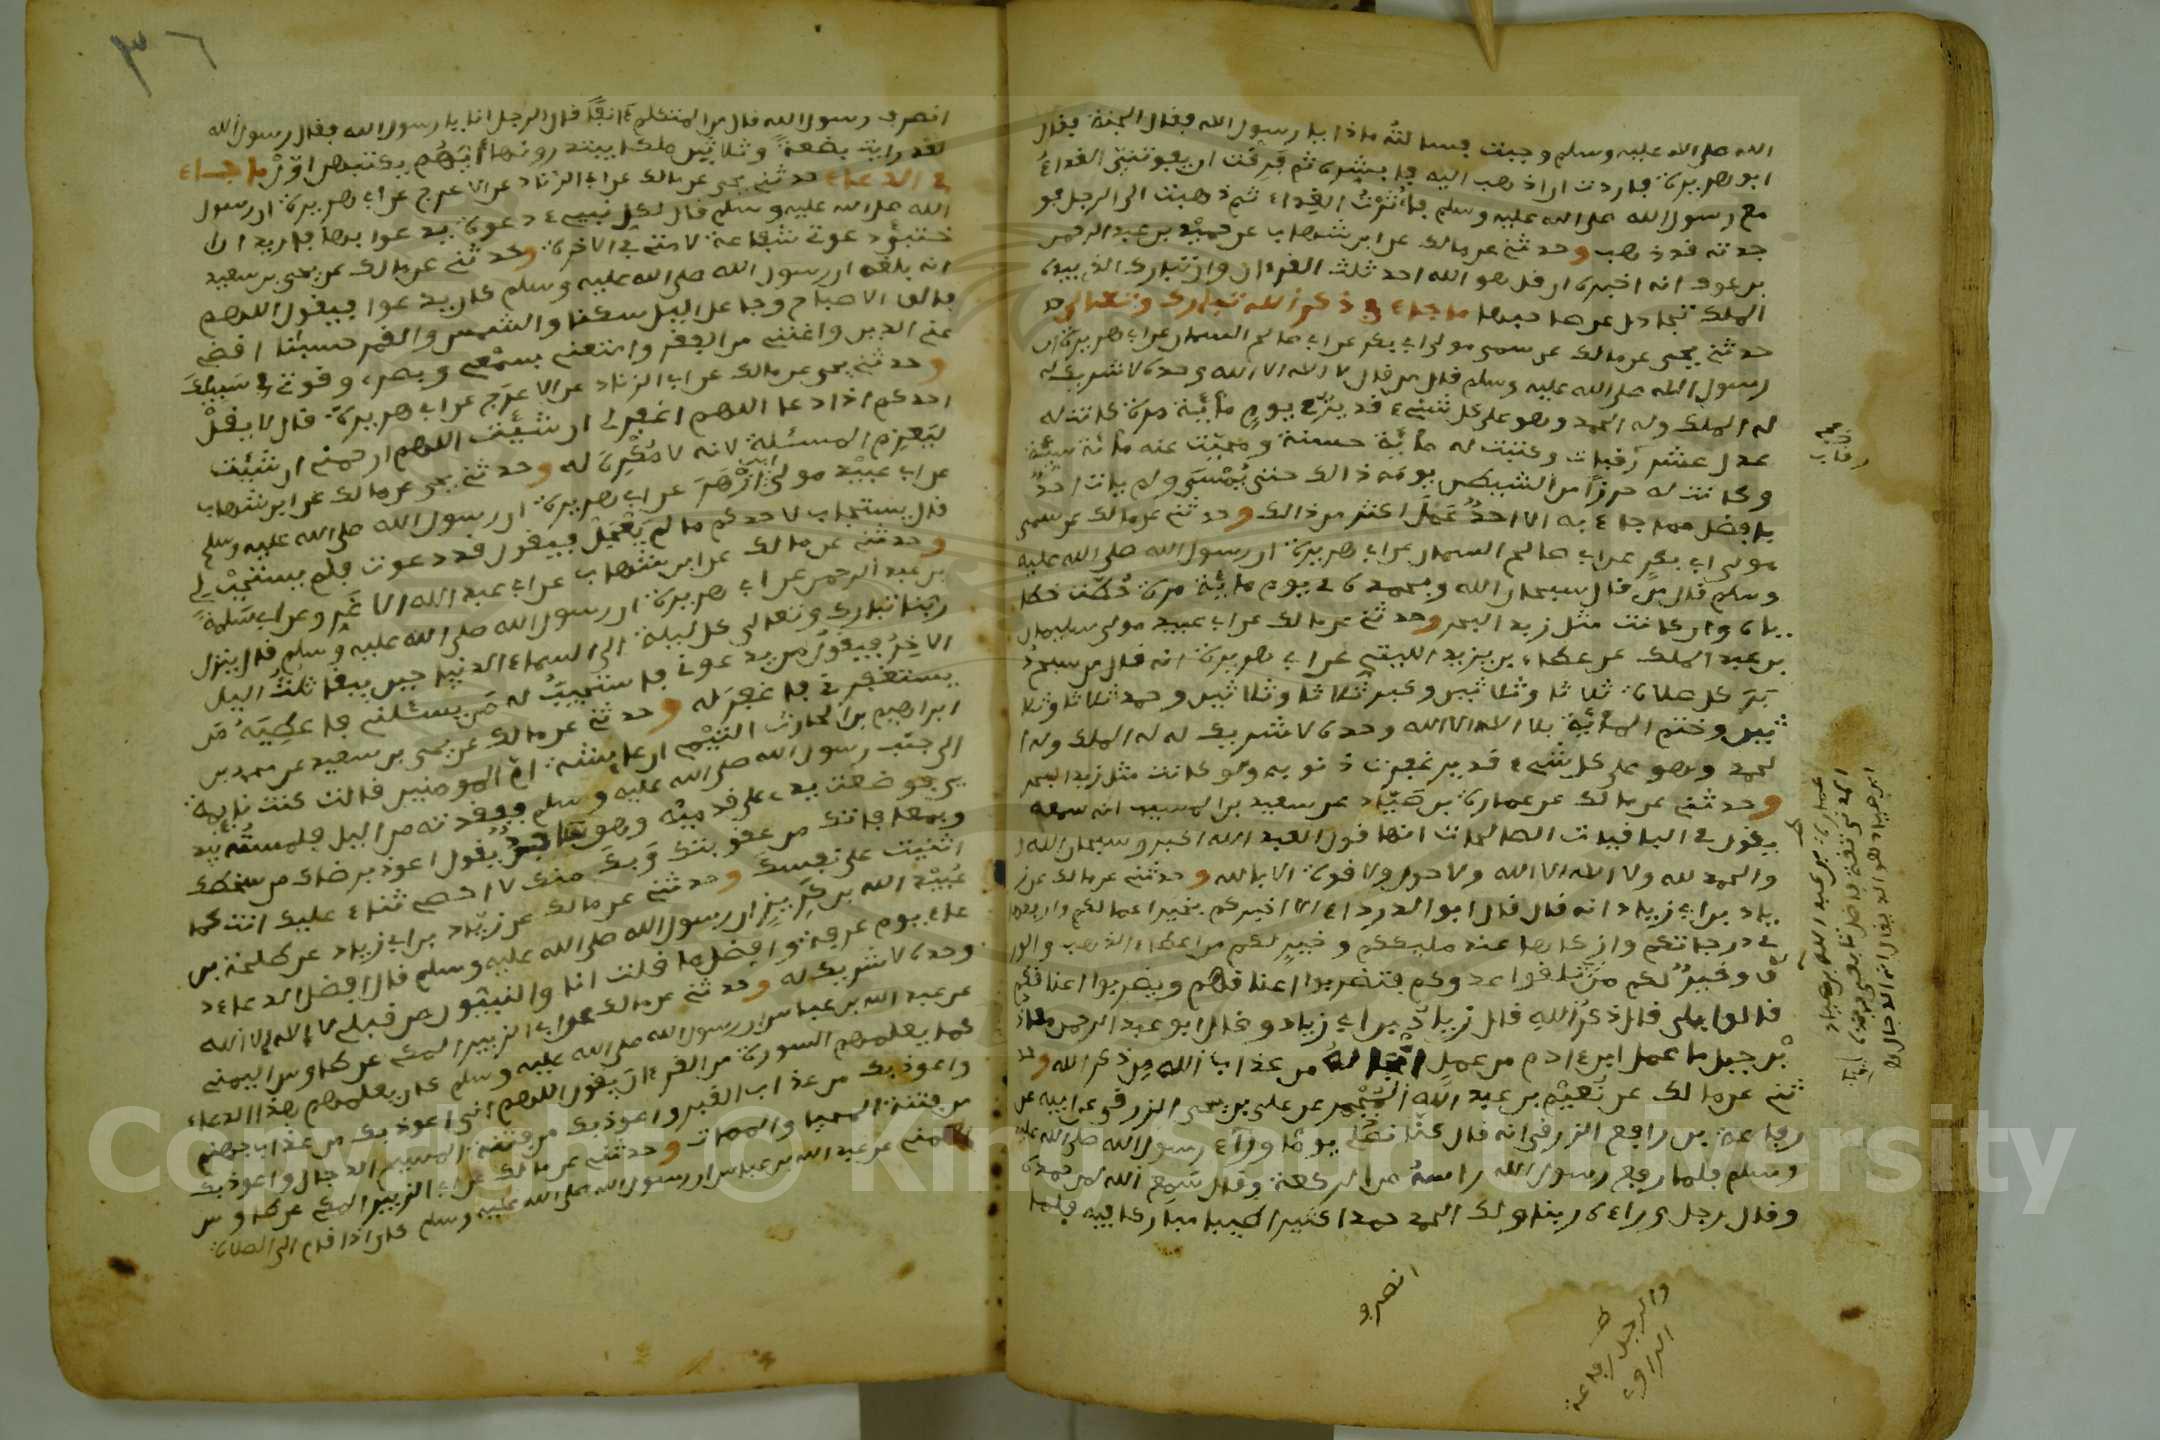 الله صلى الله عليه وسلم وجبت فسالته ماذا يا رسول الله فقال الجنة فقال
ابو هريرة فاردت ان اذهب اليه فابشره ثم فرقت ان يفوتني الغداء
مع رسول الله صلى الله عليه وسلم فاثرت الغداء ثم ذهبت الى الرجل فو
جدته قد ذهب وحدثني عن مالك عن ابن شهاب عن حميد بن عبد الرحمن
بن عوف انه اخبره ان قل هو الله احد ثلث القرءان وان تبارك الذي بيده
الملك تجادل عن صاحبها ما جاء في ذكر الله تبارك وتعالى
حدثني يحيى عن مالك عن سمي مولى ابي بكر عن ابي صالح السمان عن ابي هريرة ان
رسول الله صلى الله عليه وسلم قال من قال لا اله الا الله وحده لا شريك له
له الملك وله الحمد وهو على كل شيء قدير في يوم مائة مرة كانت له
عدل عشر رقبات وكتبت له مائة حسنة ومحيت عنه مائة سيئة
وكانت له حرزا من الشيطن يومه ذالك حتى يمسى ولم يات احد
بافضل مما جاء به الا احد عمل اكثر من ذالك وحدثني عن مالك عن سمي
مولى ابي بكر عن ابي صالح السمان عن ابي هريرة ان رسول الله صلى الله عليه
وسلم قال من قال سبحان الله وبحمده في يوم مائة مرة حطت خطا
ياه وان كانت مثل زبد البحر وحدثني عن مالك عن ابي عبيد مولى سليمان
بن عبد الملك عن عطاء بن يزيد الليثي عن ابي هريرة انه قال من سبح
دبر كل صلاة ثلاثا وثلاثين وكبر ثلاثا وثلاثين وحمد ثلاثا وثلا
ثين وختم المائة بلا اله الا الله وحده لا شريك له له الملك وله ا
لحمد وهو على كل شيء قدير غفرت ذنوبه ولو كانت مثل زبد البحر
وحدثني عن مالك عن عمارة بن صياد عن سعيد بن المسيب انه سمعه
يقول في الباقيات الصالحات انها قول العبد الله اكبر وسبحان الله
والحمد لله ولا اله الا الله ولا حول ولا قوة الا بالله وحدثني عن مالك عن ز
ياد بن ابي زياد انه قال قال ابو الدرداء الا اخبركم بخير اعمالكم وارفعها
في درجاتكم وازكاها عند مليككم وخير لكم من اعطاء الذهب والور
ق وخير لكم من ان تلقوا عدوكم فتضربوا اعناقهم ويضربوا اعناقكم
قالوا بلى قال ذكر الله قال زياد بن ابي زياد وقال ابو عبد الرحمن معاذ
بن جبل ما عمل ابن ءادم من عمل انجا له من عذاب الله من ذكر الله وحد
ثني عن مالك عن نعيم بن عبد الله المجمر عن علي بن يحيى الزرقي عن ابيه عن
رفاعة بن رافع الزرقي انه قال كنا نصلي يوما وراء رسول الله صلى الله عليه
وسلم فلما رفع رسول الله راسه من الركعة وقال سمع الله لمن حمده
وقال رجل وراءه ربنا ولك الحمد حمدا كثيرا طيبا مباركا فيه فلما
انصرف
والرجل رفاعة
الراوي
رقاب
عمارة بن عبد الله بن صياد
٣٦
انصرف رسول الله قال من المتكلم ءانفا قال الرجل انا يا رسول الله فقال رسول الله
لقد رايت بضعة وثلاثين ملكا يبتدرونها ايهم يكتبهن اول ما جاء
في الدعاء حدثني يحيى عن مالك عن ابي الزناد عن الاعرج عن ابي هريرة ان رسول
الله صلى الله عليه وسلم قال لكل نبيء دعوة يدعوا بها فاريد ان
اختبئ دعوتي شفاعة لامتي في الاخرة وحدثني عن مالك عن يحيى بن سعيد
انه بلغه ان رسول الله صلى الله عليه وسلم كان يدعوا فيقول اللهم
فالق الاصباح وجاعل اليل سكنا والشمس والقمر حسبانا اقض
عني الدين واغنني من الفقر وامتعني بسمعي وبصري وقوتي في سبيلك
وحدثني يحيى عن مالك عن ابي الزناد عن الاعرج عن ابي هريرة قال لا يقل
احدكم اذا دعا اللهم اغفر لي ان شئت اللهم ارحمني ان شئت
ليعزم المسئلة لانه لا مكره له وحدثني يحيى عن مالك عن ابن شهاب
عن ابي عبيد مولى ابن ازهر عن ابي هريرة ان رسول الله صلى الله عليه وسلم
قال يستجاب لاحدكم ما لم يعجل فيقول قد دعوت فلم يستجب لي
وحدثني عن مالك عن ابن شهاب عن ابي عبد الله الاغر وعن ابي سلمة
بن عبد الرحمن عن ابي هريرة ان رسول الله صلى الله عليه وسلم قال ينزل
ربنا تبارك وتعالى كل ليلة الى السماء الدنيا حين يبقا ثلث اليل
الاخر فيقول من يدعوني فاستجيب له من يسئلني فاعطيه من
يستغفرني فاغفر له وحدثني عن مالك عن يحيى بن سعيد عن محمد بن
ابراهيم بن الحارث التيمي ان عايشة ام المومنين قالت كنت نايمة
الى جنب رسول الله صلى الله عليه وسلم ففقدته من اليل فلمسته بيد
ي فوضعت يدي على قدميه وهو ساجد يقول اعوذ برضاك من سخطك
وبمعافاتك من عقوبتك وبك منك لا احصي ثناء عليك انت كما
اثنيت على نفسك وحدثني عن مالك عن زياد بن ابي زياد عن طلحة بن
عبيد الله بن كريز ان رسول الله صلى الله عليه وسلم قال افضل الدعاء د
عاء يوم عرفة وافضل ما قلت انا والنبيئون من قبلي لا اله الا الله
وحده لا شريك له وحدثني عن مالك عن ابي الزبير المكي عن طاوس اليمني
عن عبد الله بن عباس ان رسول الله صلى الله عليه وسلم كان يعلمهم هذا الدعاء
كما يعلمهم السورة من القرءان يقول اللهم اني اعوذ بك من عذاب جهنم
واعوذ بك من عذاب القبر واعوذ بك من فتنة المسيح الدجال واعوذ بك
من فتنة المحيا والممات وحدثني عن مالك عن ابي الزبير المكي عن طاوس
اليمني عن عبد الله بن عباس ان رسول الله صلى الله عليه وسلم كان اذا قام الى الصلاة
Copyright © King Saud University